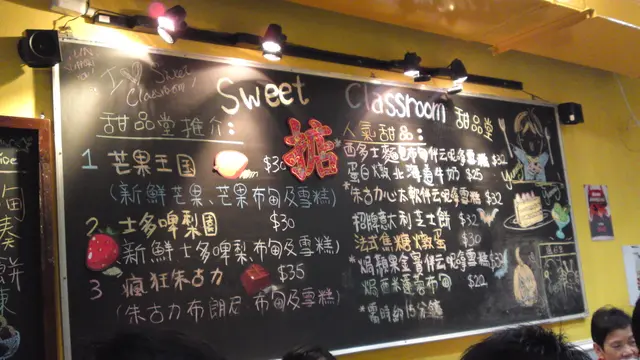 I ♡ Sweet
Classroom!
Sweet Classroom 甜品堂
甜品堂推介:
1 芒果王国 $30
(新鮮芒果、芒果布甸及雪糕)
2 士多啤梨園 $30
(新鮮士多啤梨、布甸及雪糕)
3 瘋狂朱古力 $35
(朱古力布朗尼、布甸及雪糕)
人氣甜品:
西多士麵包布甸伴云呢拿雪糕 $32
蛋白燉北海道牛奶 $25
*朱古力心太軟伴云呢拿雪糕 $32
招牌意大利芝士餅 $32
法式焦糖燉蛋 $30
*焗蘋果金寶伴云呢拿雪糕 $32
焗西米蓮蓉布甸 $22
*需時約15分鐘